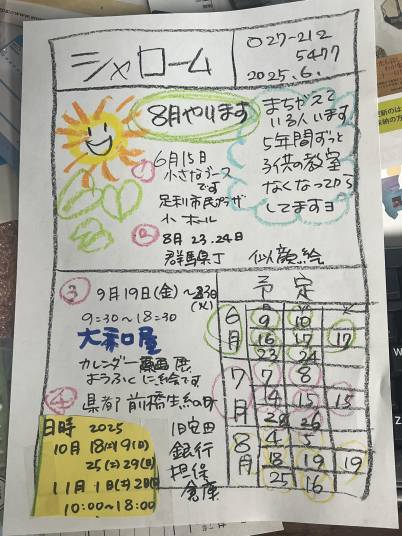 シャローム
027-212
5477
2025.6.
8月やります
まちがえて
いる人います
5年間ずっと
子供の教室
なくなってから
してますョ
①
6月15日
小さなブース
です
足利市民プラザ
小ホール
②
8月23.24日
群馬県庁 似顔絵
③ 9月19日(金)~23日
(火)
9:30~18:30
大和屋
カレンダー原画展
ようふくに絵です
④ 県都 前橋生糸の町
日時 2025
10月18(土)19(日)
25(土)29(日)
11月1日(土)2日(日)
10:00~18:00
旧安田
銀行
担保
倉庫
予定
6月
9 10
16 17 17
23 24
7月
7 8
14 15 15
28 26
8月
4 5
18 19 19
25 16